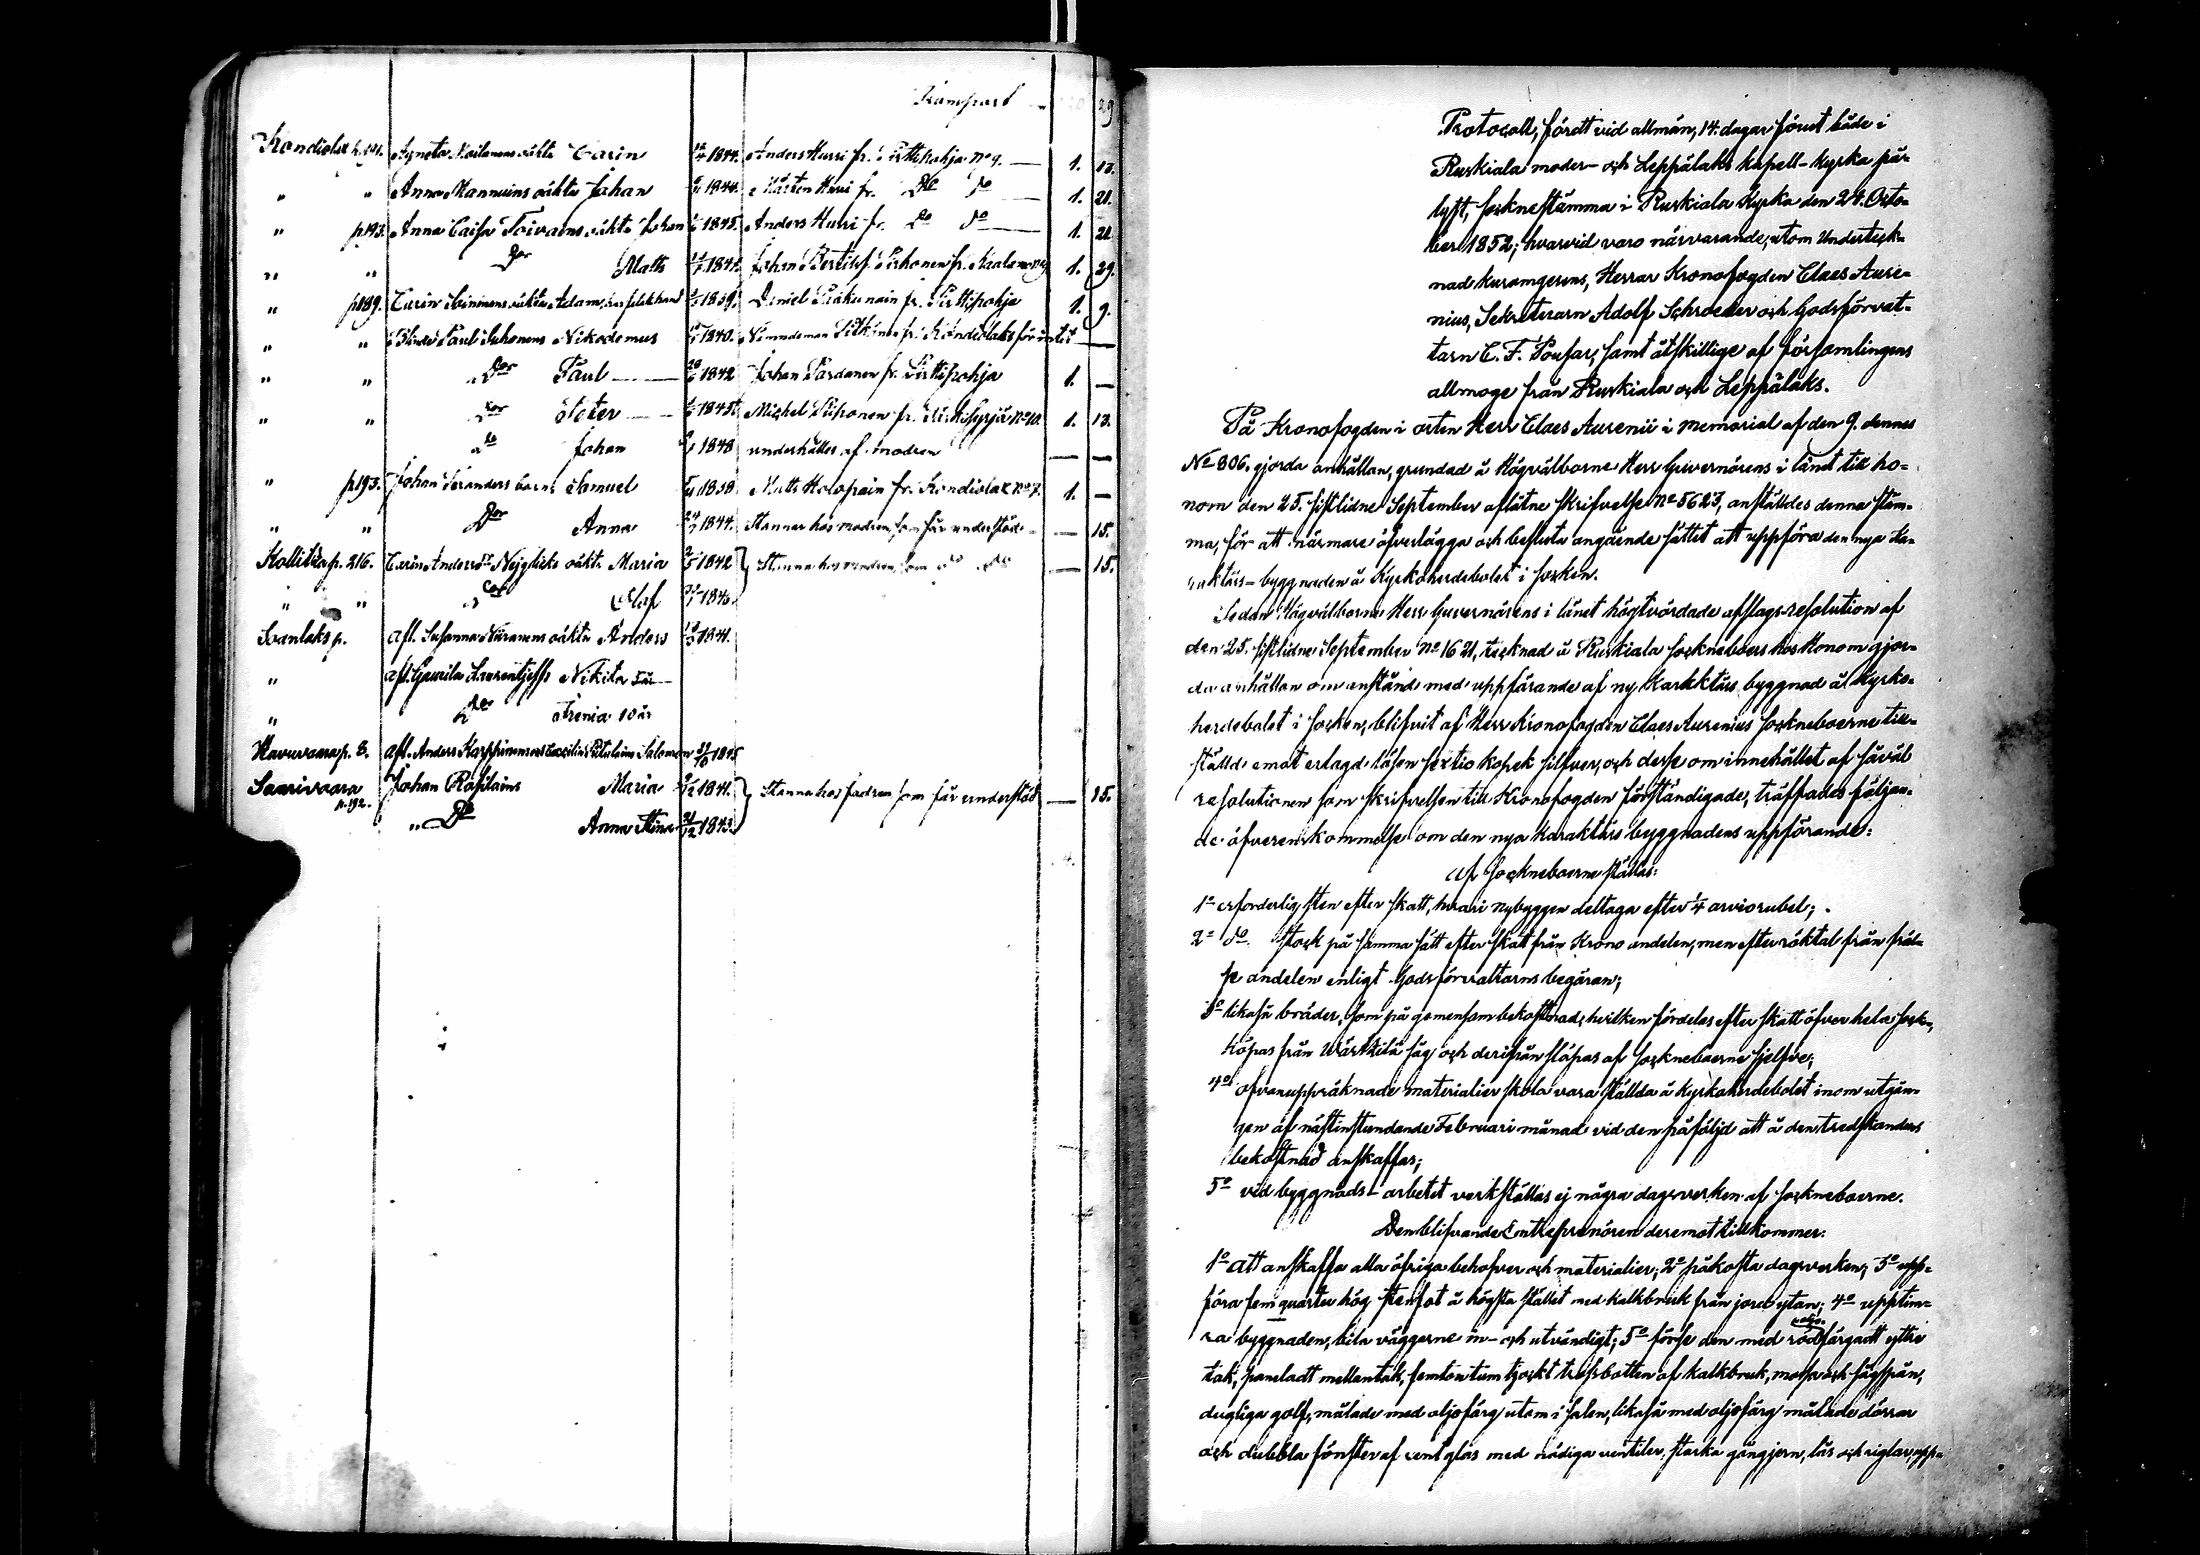 Transport 29
Kondiolax p. 191. Agneta oäkta Carin 1844. Anders Hurri fr. Pirttipohja No 9. — 1.
" " Anna Mannuins oäkta Johan 1844. Mårten Hurri fr. Do do — 1. 21.
" p 193. Anna Caisa Toivains oäkta Johan 1845. Anders Hurri fr. Do do — 1. 21
" " Dor Matts Johan Pirhonen fr. 1. 29.
" p 189. Carin oäkta Adam 1839. Daniel fr. Pirttipohja 1. 9.
" " Paul Nikodemus 1840. Nämndeman fr. Kondiolaks för intet —
" " Dor Paul — 1842 Johan Pardanen fr. Pirttipohja 1. —
" " Dor Peter — 1845 Michel fr. No 10. 1. 13.
do Johan 1848 underhålles af modren — —
" p 193. Johan barn Samuel 1838 Matts Holopain fr. Kondiolax No 7. 1. —
" " Dor Anna 1844. Stannar hos modren, som får understöd — — 15.
Kollitka p. 216. Carin oäkta Maria 1842 Stanna hos modren, som do Do — 15.
" " do Olof 1846.
Soanlaks p. afl. Susanna oäkta Anders 1841.
" afl. Nikita
" Do Irenia 10 år
Havuvaara p. 8. afl. Anders Salomon 1845
Saarivaara Johan Maria 1841. Stanna hos fadren som får understöd — 15.
p. 192. " Do Anna Stina 1843.
Protocoll, fördt vid allmän, 14. dagar förut både i
Ruskiala moder- och Leppälaks kapell-kyrka pår
lyst, socknestämma i Ruskiala Kyrka den 24. Octo-
ber 1852; hvarvid voro närvarande, utom Underteck-
nad Herrar Kronofogden Claes Aure-
nius, Sekreteraren Adolf Schroeder och Godsförvat-
tarn C. F. samt åtskillige af församlingens
allmoge från Ruskiala och Leppälaks.
På Kronofogden i orten Herr Claes Aurenii i memorial af den 9. dennes
No 806. gjorda anhållan, grundad å Högvälborne Herr Guvernörens i länet till ho-
nom den 25. sistlidne September aflåtne skrifvelse No 5623, anställdes denna stäm-
ma, för att närmare öfverlägga och besluta angående sättet att uppföra den nya Ka-
raktärs-byggnaden å Kyrkoherdebolet i socken.
Sedan Högvälborne Herr Guvernörens i länet högtvördade afslags-resolution af
den 25. sistlidne September No 1621, tecknad å Ruskiala sockneboers hos Honom gjor-
da anhållan om anstånd med uppförande af ny Karaktärs byggnad å Kyrko-
herdebolet i socken, blifvit af Herr Kronofogden Claes Aurenius sockneboerne till-
ställd emot erlagd lösen sextio kopek silfver, och desse om innehållet af såväl
resolutionen som skrifvelsen till Kronofogden förständigade, träffades följan-
de öfverenskommelse om den nya Karaktärs byggnadens uppförande:
af sockneboerne ställas:
1o erforderlig sten efter skatt, hvari nybyggen deltaga efter 1/4 arviorubel;
2o do. stock på samma sätt efter skatt från Krono andelen, men efter röktal från fräl-
se andelen enligt Godsförvaltarns begäran;
3o likaså bräder, som på gemensam bekostnad, hvilken fördelas efter skatt öfver hela sockn,
köpas från Wärtsilä såg och derifrån släpas af sockneboerne sjelfve;
4o ofvanuppräknade materialier skola vara ställda å Kyrkoherdebolet inom utgån-
gen af nästinstundande Februari månad vid den påföljd att å den tredskandes
bekostnad anskaffas;
5o vid byggnads-arbetet verkställas ej några dagsverken af sockneboerne.
Den blifvande Entreprenören deremot tillkommer:
1o att anskaffa alla öfriga behofver och materialier; 2o påkosta dagsverken; 3o upp-
föra fem quarter hög stenfot å högsta stället med kalkbruk från jord ytan; 4o upptim-
ra byggnaden, bila väggerne in- och utvändigt; 5o förse den med rödfärgadt yttre
tak, paneladt mellantak, femton tum tjockt trossbotten af kalkbruk, mossa och sågspån,
dugliga golf, målade med oljofärg utom i salen, likaså med oljofärg målade dörrar
och dubbla fönster af glas med nödiga ventiler, starka gångjern, lås och riglar, upp-